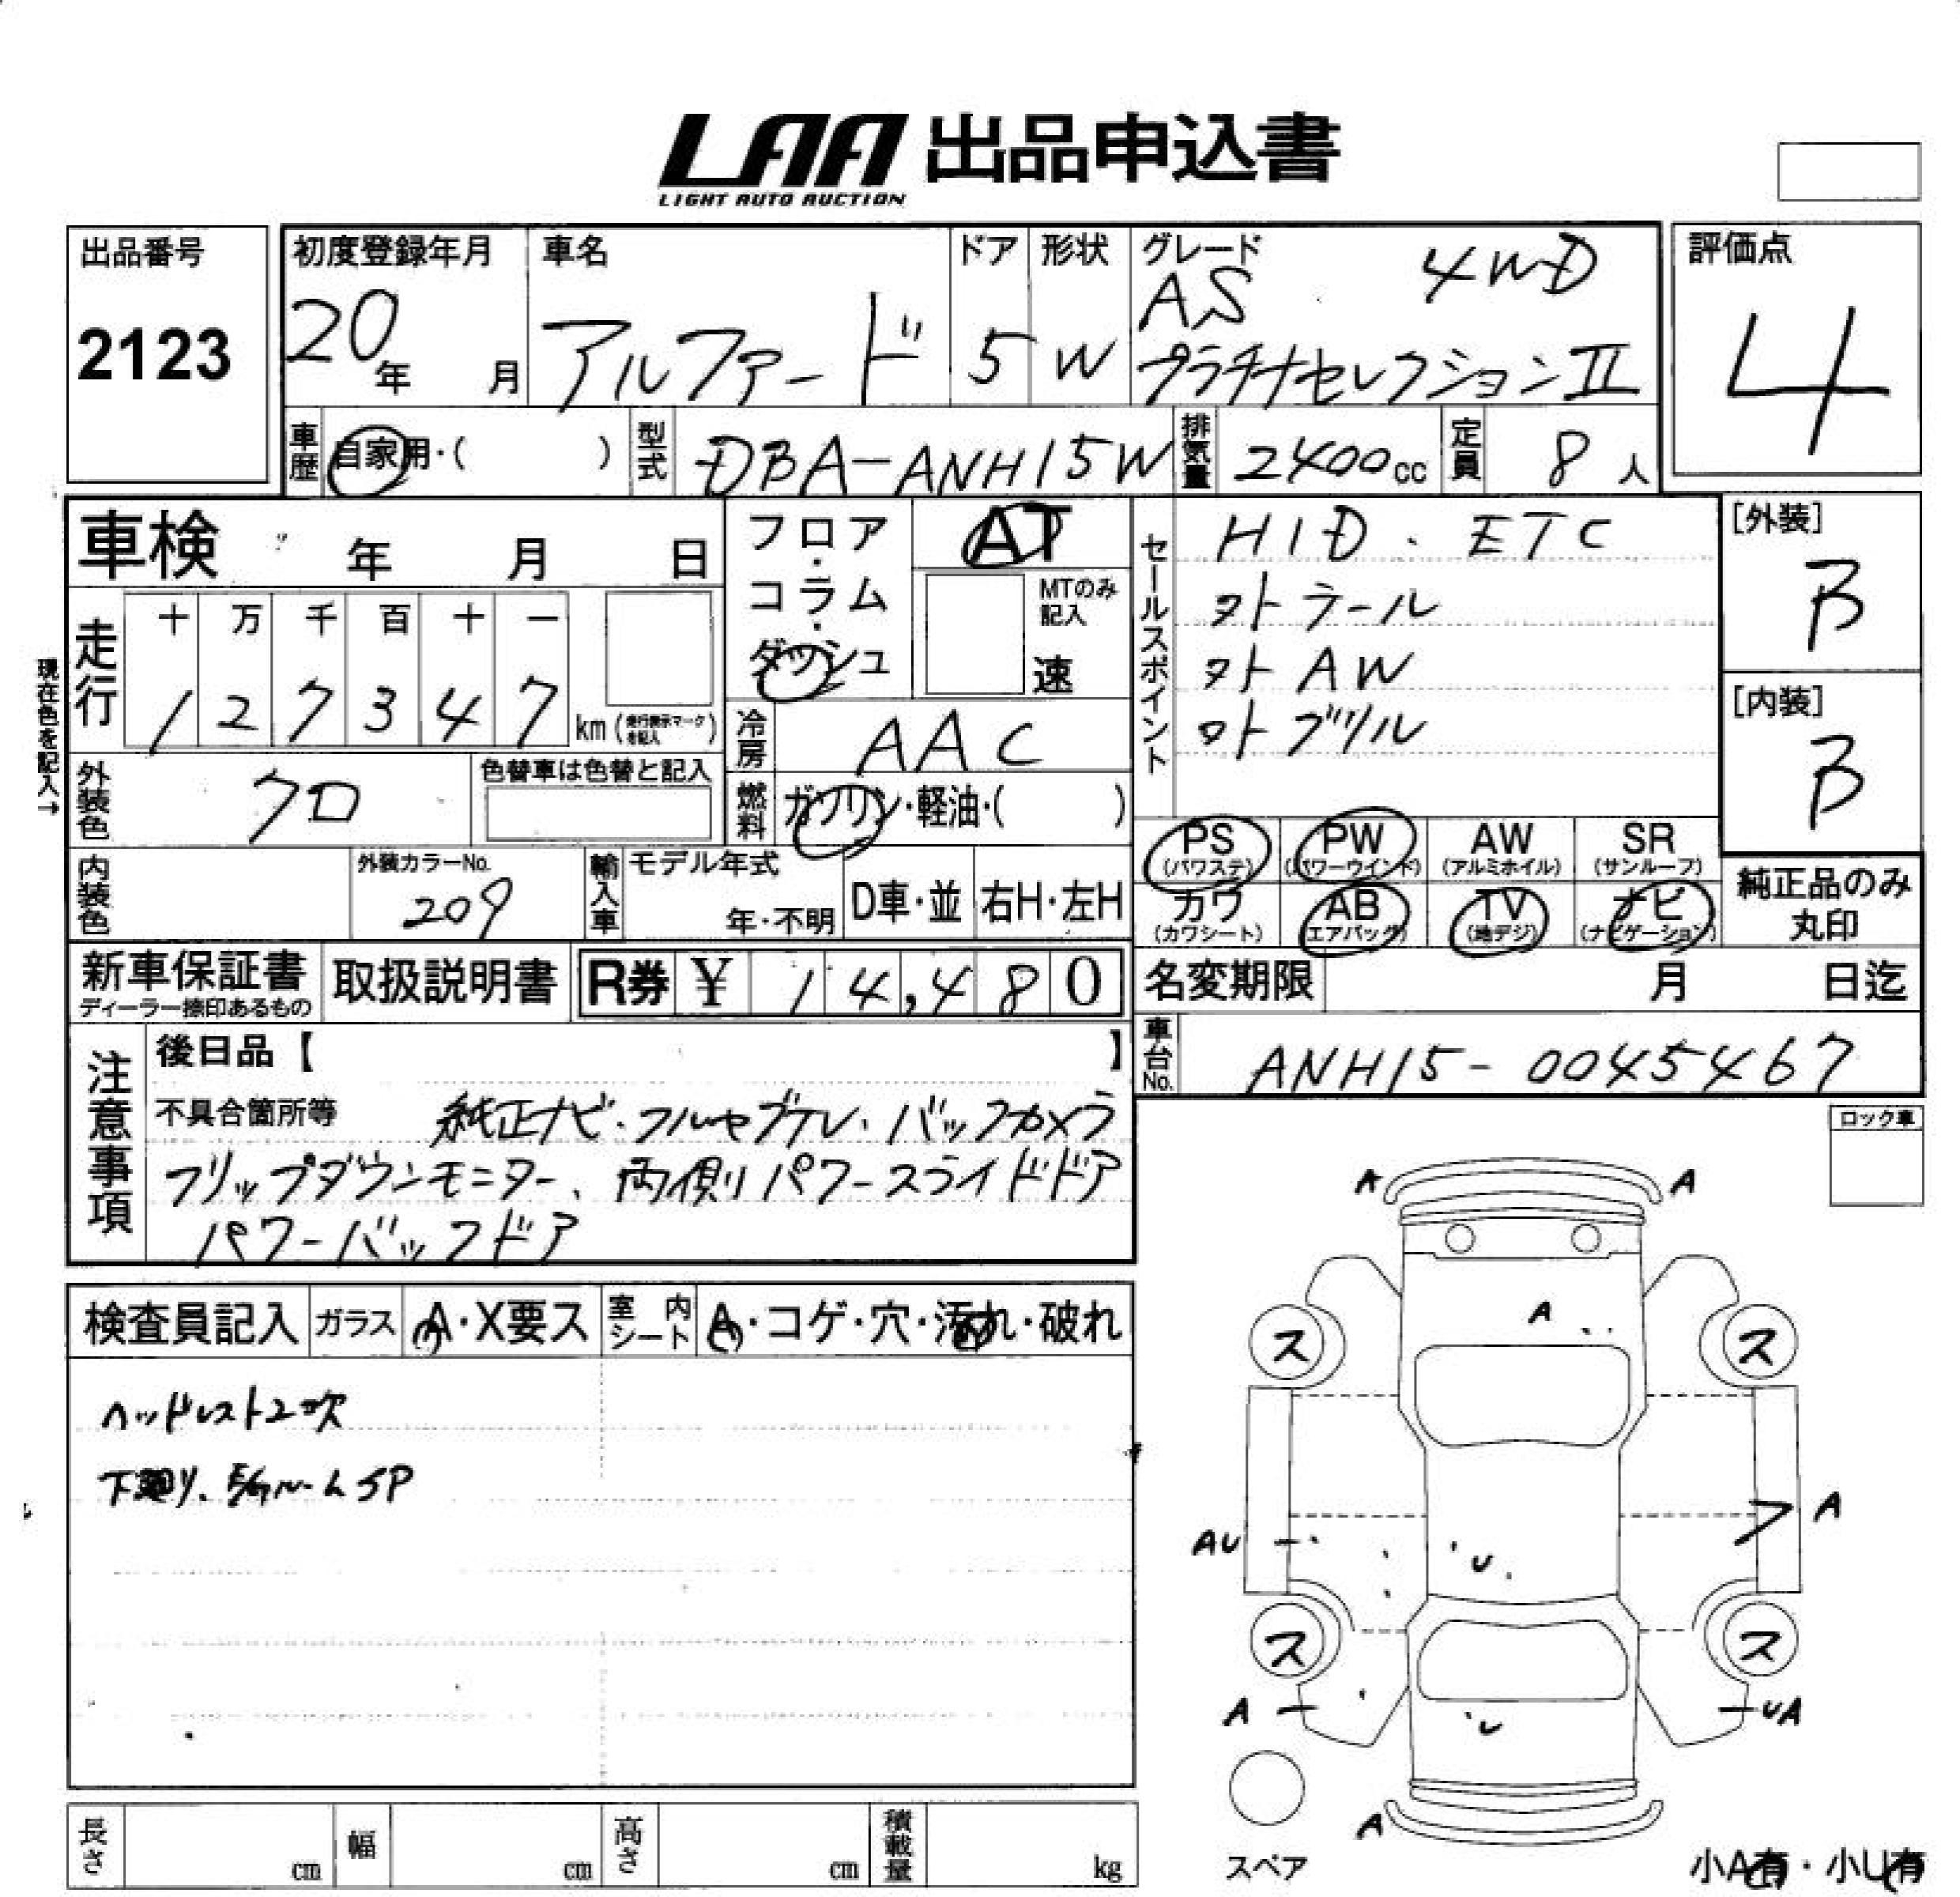 LAA 出品申込書
LIGHT AUTO AUCTION
出品番号
2123
初度登録年月
20年 月
車名
アルファード
ドア
5
形状
W
グレード
AS 4WD
プラチナセレクションII
評価点
4
車歴 自家用・( )
型式 DBA-ANH15W
排気量 2400cc
定員 8人
車検 年 月 日
フロア・コラム・ダッシュ
AT
MTのみ記入
速
セールスポイント
HID・ETC
外トテール
外トAW
外トグリル
[外装]
B
[内装]
B
現在色を記入→
走行
十 万 千 百 十 一
1 2 7 3 4 7 km (走行表示マークを記入)
冷房 AAC
外装色 クロ
色替車は色替と記入
燃料 ガソリン・軽油・( )
PS (パワステ)
PW (パワーウインド)
AW (アルミホイル)
SR (サンルーフ)
カワ (カワシート)
AB (エアバッグ)
TV (地デジ)
ナビ (ナビゲーション)
純正品のみ丸印
内装色
外装カラーNo.
209
輸入車
モデル年式
年・不明
D車・並
右H・左H
新車保証書
ディーラー捺印あるもの
取扱説明書
R券 ¥ 14,480
名変期限 月 日迄
車台No. ANH15-0045467
注意事項
後日品【 】
不具合箇所等 純正ナビ・フルセグTV・バックカメラ
フリップダウンモニター、両側パワースライドドア
パワーバックドア
ロック車
検査員記入
ガラス A・X要ス
室内シート A・コゲ・穴・汚れ・破れ
ヘッドレスト2ヶ欠
下廻り、
SP
A A
A
ス ス
A
AU
U
ス ス
A UA
U
A
スペア
小A有・小U有
長さ cm
幅 cm
高さ cm
積載量 kg